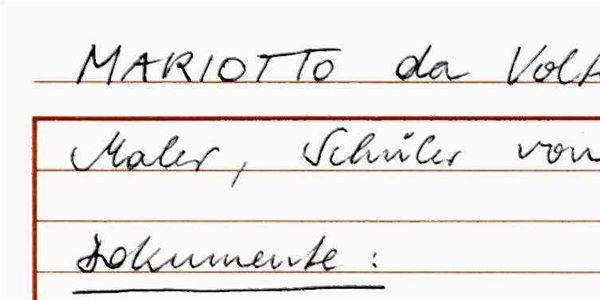 MARIOTTO da Volt
Maler, Schüler von
Dokumente: